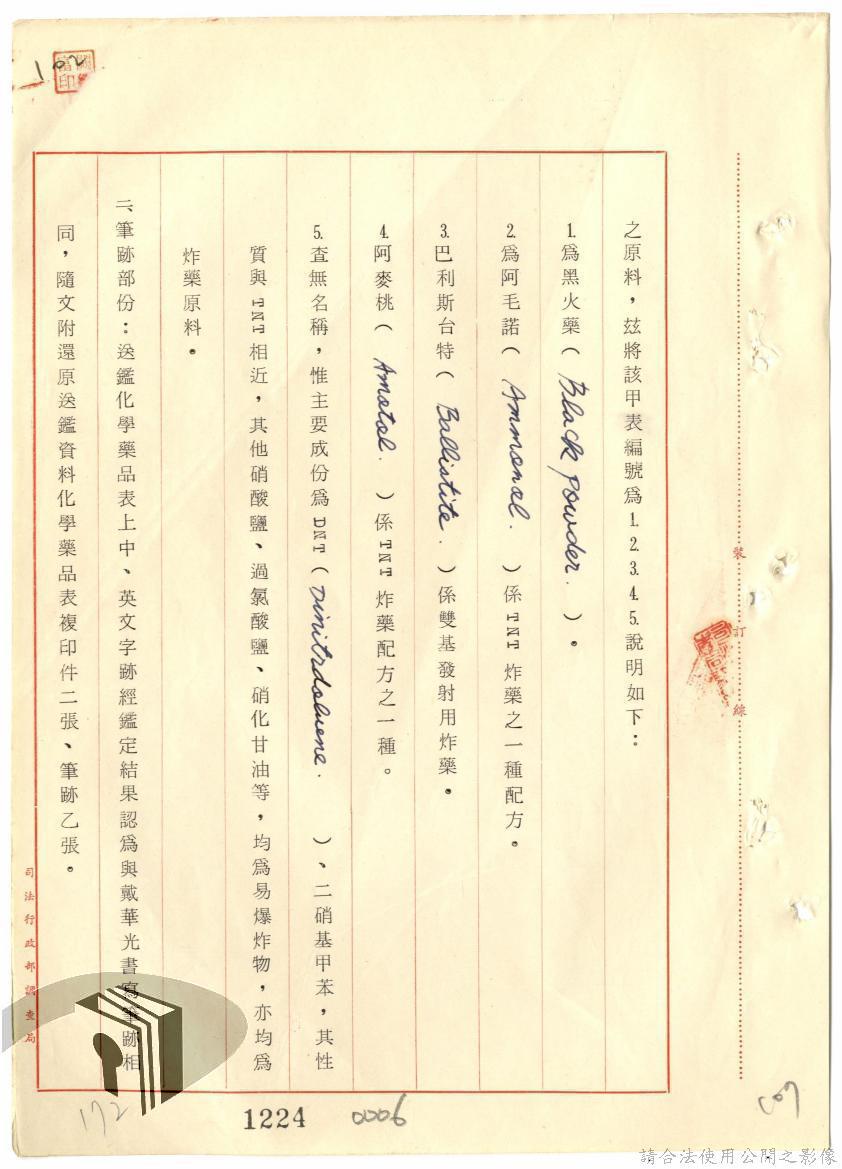 之原料，玆將該甲表編號為1.2.3.4.5.說明如下：
1.為黑火藥（Black powder.）。
2.為阿毛諾（Ammonal.）係TNT炸藥之一種配方。
3.巴利斯台特（Ballistite.）係雙基發射用炸藥。
4.阿麥桃（Amatol.）係TNT炸藥配方之一種。
5.查無名稱，惟主要成份為DNT（Dinitrdoluene.）、二硝基甲苯，其性
質與TNT相近，其他硝酸鹽、過氯酸鹽、硝化甘油等，均為易爆炸物，亦均為
炸藥原料。
二、筆跡部份：送鑑化學藥品表上中、英文字跡經鑑定結果認為與戴華光書寫筆跡相
同，隨文附還原送鑑資料化學藥品表複印件二張、筆跡乙張。
裝訂線
司法行政部調查局
102
172
1224
0006
請合法使用公開之影像